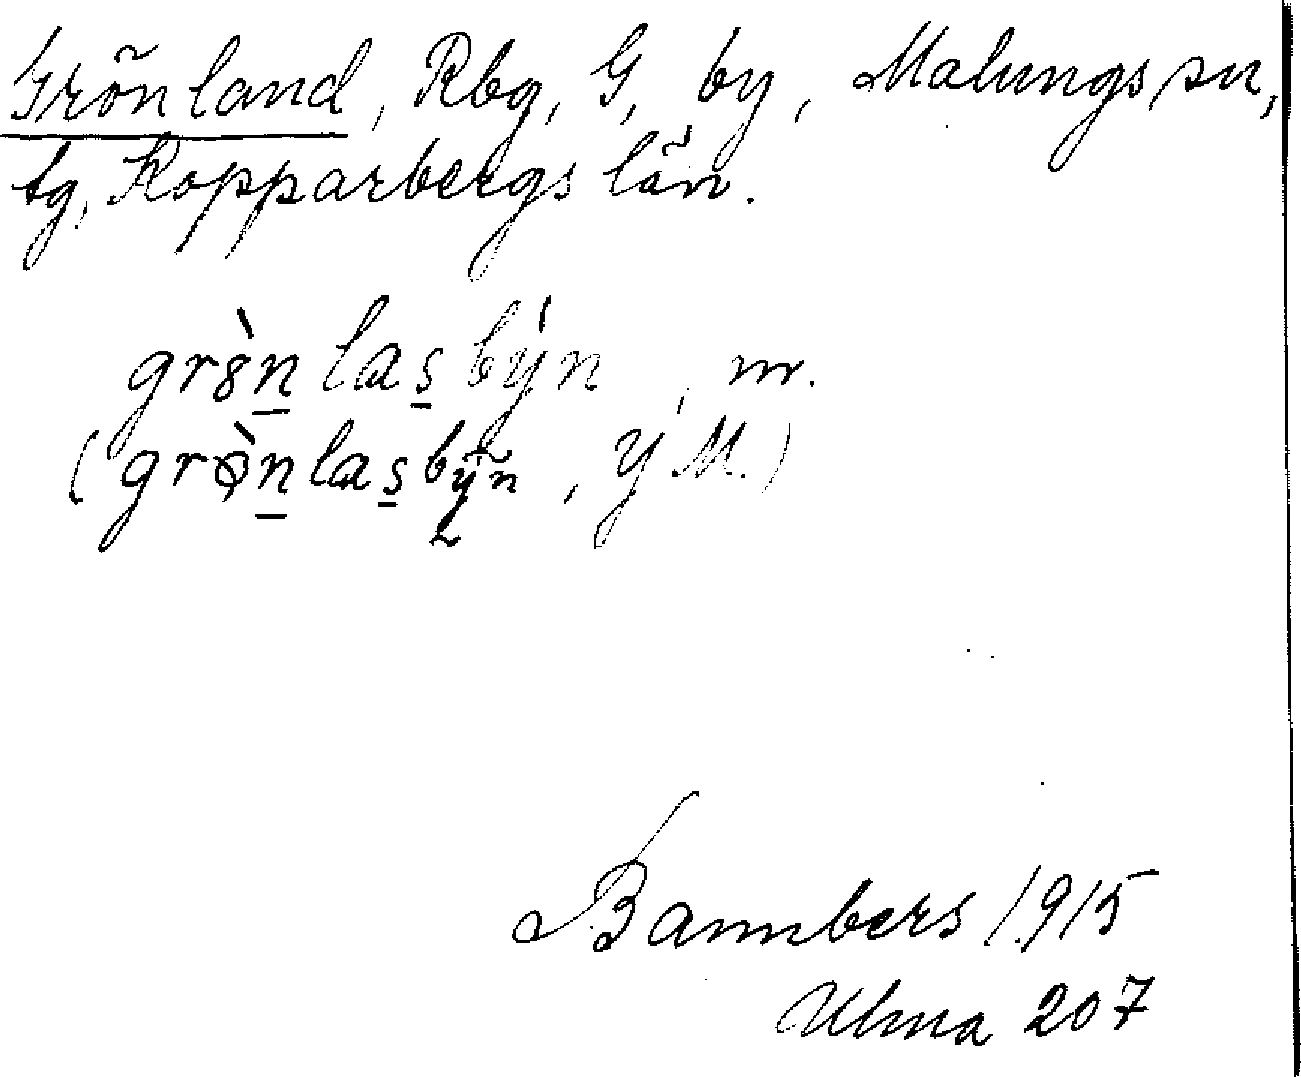 Grönland, Rbg, G, by, Malungs sn,
tg, Kopparbergs län.
grö̀n̲las̲býn, m.
(grø̀n̲las̲by̆n, y' M.)
2
Bannbers 1915
Ulma 207